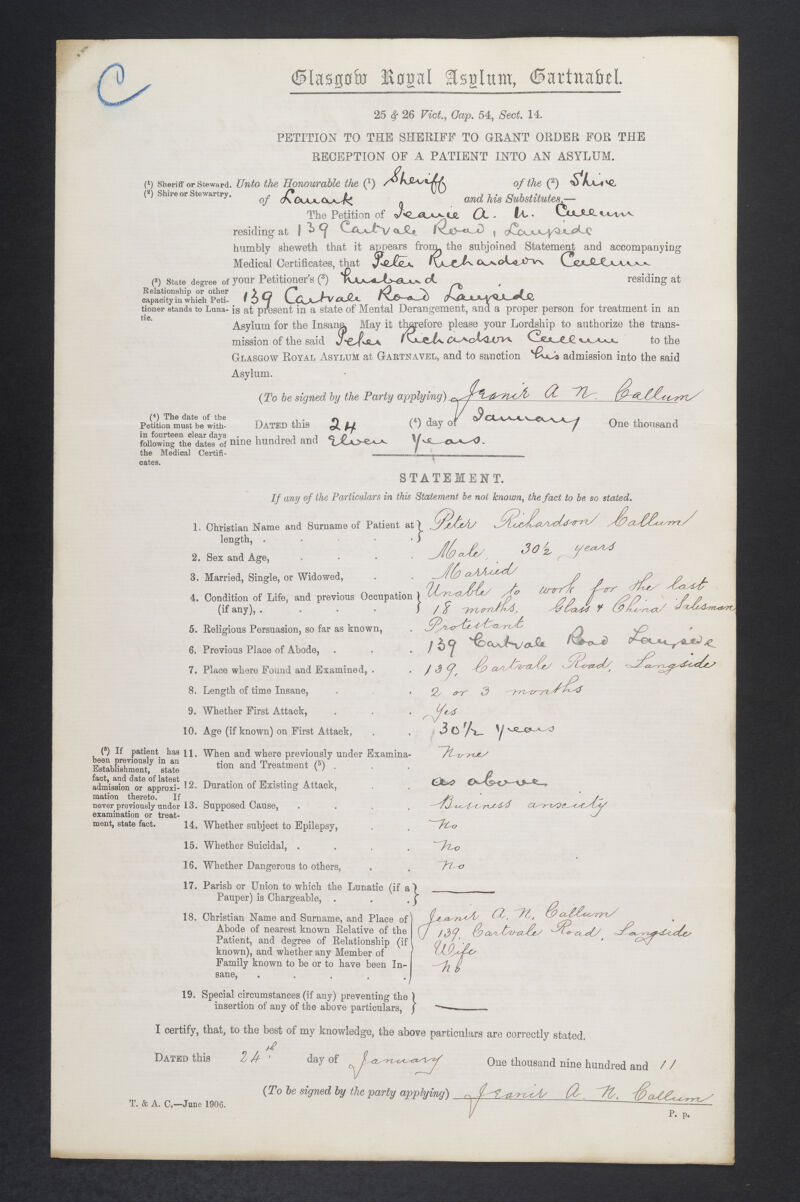 C
Glasgow Royal Asylum, Gartnabel.
25 & 26 Vict., Cap. 54, Sect. 14.
PETITION TO THE SHERIFF TO GRANT ORDER FOR THE
RECEPTION OF A PATIENT INTO AN ASYLUM.
(1) Sheriff or Steward. Unto the Honourable the (1) Sheriff of the (2) Shire
(2) Shire or Stewartry. of Lanark and his Substitutes,—
The Petition of Jeanie A. N. Callum
residing at 139 Cartvale Road, Langside
humbly sheweth that it appears from the subjoined Statement and accompanying
Medical Certificates, that Peter Richardson Callum
(3) State degree of Relationship or other capacity in which Petitioner stands to Lunatic.
your Petitioner's (3) husband residing at
139 Cartvale Road Langside
is at present in a state of Mental Derangement, and a proper person for treatment in an
Asylum for the Insane. May it therefore please your Lordship to authorize the trans-
mission of the said Peter Richardson Callum to the
GLASGOW ROYAL ASYLUM at GARTNAVEL, and to sanction his admission into the said
Asylum.
(To be signed by the Party applying) Jeanie A N. Callum
(4) The date of the
Petition must be with-
in fourteen clear days
following the dates of
the Medical Certifi-
cates.
DATED this 24 (4) day of January One thousand
nine hundred and Elven Years.
STATEMENT.
If any of the Particulars in this Statement be not known, the fact to be so stated.
1. Christian Name and Surname of Patient at length, . Peter Richardson Callum
2. Sex and Age, Male. 30½ years
3. Married, Single, or Widowed, Married
4. Condition of Life, and previous Occupation Unable to work for the last
(if any), . 18 months. Glass & China Salesman
5. Religious Persuasion, so far as known, Protestant
6. Previous Place of Abode, 139 Cartvale Road Langside
7. Place where Found and Examined, . 139, Cartvale Road, Langside
8. Length of time Insane, 2 or 3 months
9. Whether First Attack, Yes
10. Age (if known) on First Attack, 30½ years
(5) If patient has
been previously in an
Establishment, state
fact, and date of latest
admission or approxi-
mation thereto. If
never previously under
examination or treat-
ment, state fact.
11. When and where previously under Examina- None
tion and Treatment (5) .
12. Duration of Existing Attack, as above
13. Supposed Cause, Business anxciety
14. Whether subject to Epilepsy, No
15. Whether Suicidal, . No
16. Whether Dangerous to others, No
17. Parish or Union to which the Lunatic (if a
Pauper) is Chargeable, .
18. Christian Name and Surname, and Place of Jeanie A. N. Callum
Abode of nearest known Relative of the 139, Cartvale Road, Langside
Patient, and degree of Relationship (if Wife
known), and whether any Member of No
Family known to be or to have been In-
sane, .
19. Special circumstances (if any) preventing the
insertion of any of the above particulars,
I certify, that, to the best of my knowledge, the above particulars are correctly stated.
DATED this 24th. day of January One thousand nine hundred and 11
(To be signed by the party applying) Jeanie A. N. Callum
T. & A. C.—June 1906.
P. p.